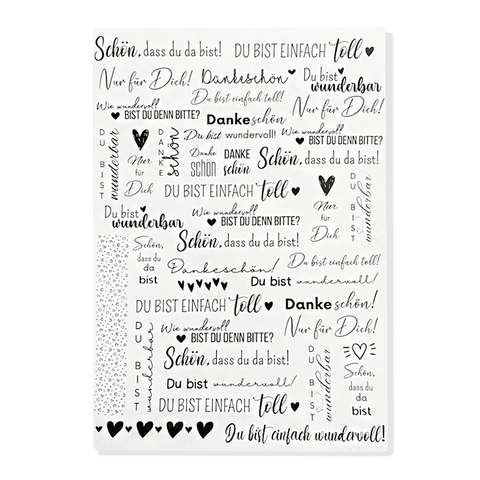 Schön, dass du da bist! DU BIST EINFACH toll
Nur für Dich! Dankeschön Du bist wunderbar
Du bist einfach toll! Nur für Dich!
Wie wundervoll BIST DU DENN BITTE? Danke schön
DU BIST wunderbar
DANKE schön
Du bist wundervoll! Wie wundervoll BIST DU DENN BITTE?
Nur für Dich
Danke schön
DANKE schön
Schön, dass du da bist!
DU BIST EINFACH toll
Nur für Dich
DU BIST wunderbar
Du bist wunderbar
Wie wundervoll BIST DU DENN BITTE?
Schön, dass du da bist
Schön, dass du da bist!
Dankeschön! Du bist einfach toll!
Du bist wundervoll!
DU BIST EINFACH toll Danke schön!
DU BIST wunderbar
Wie wundervoll BIST DU DENN BITTE? Nur für Dich!
Schön, dass du da bist!
DU BIST wunderbar
Schön, dass du da bist
Du bist wundervoll!
DU BIST EINFACH toll
Du bist einfach wundervoll!